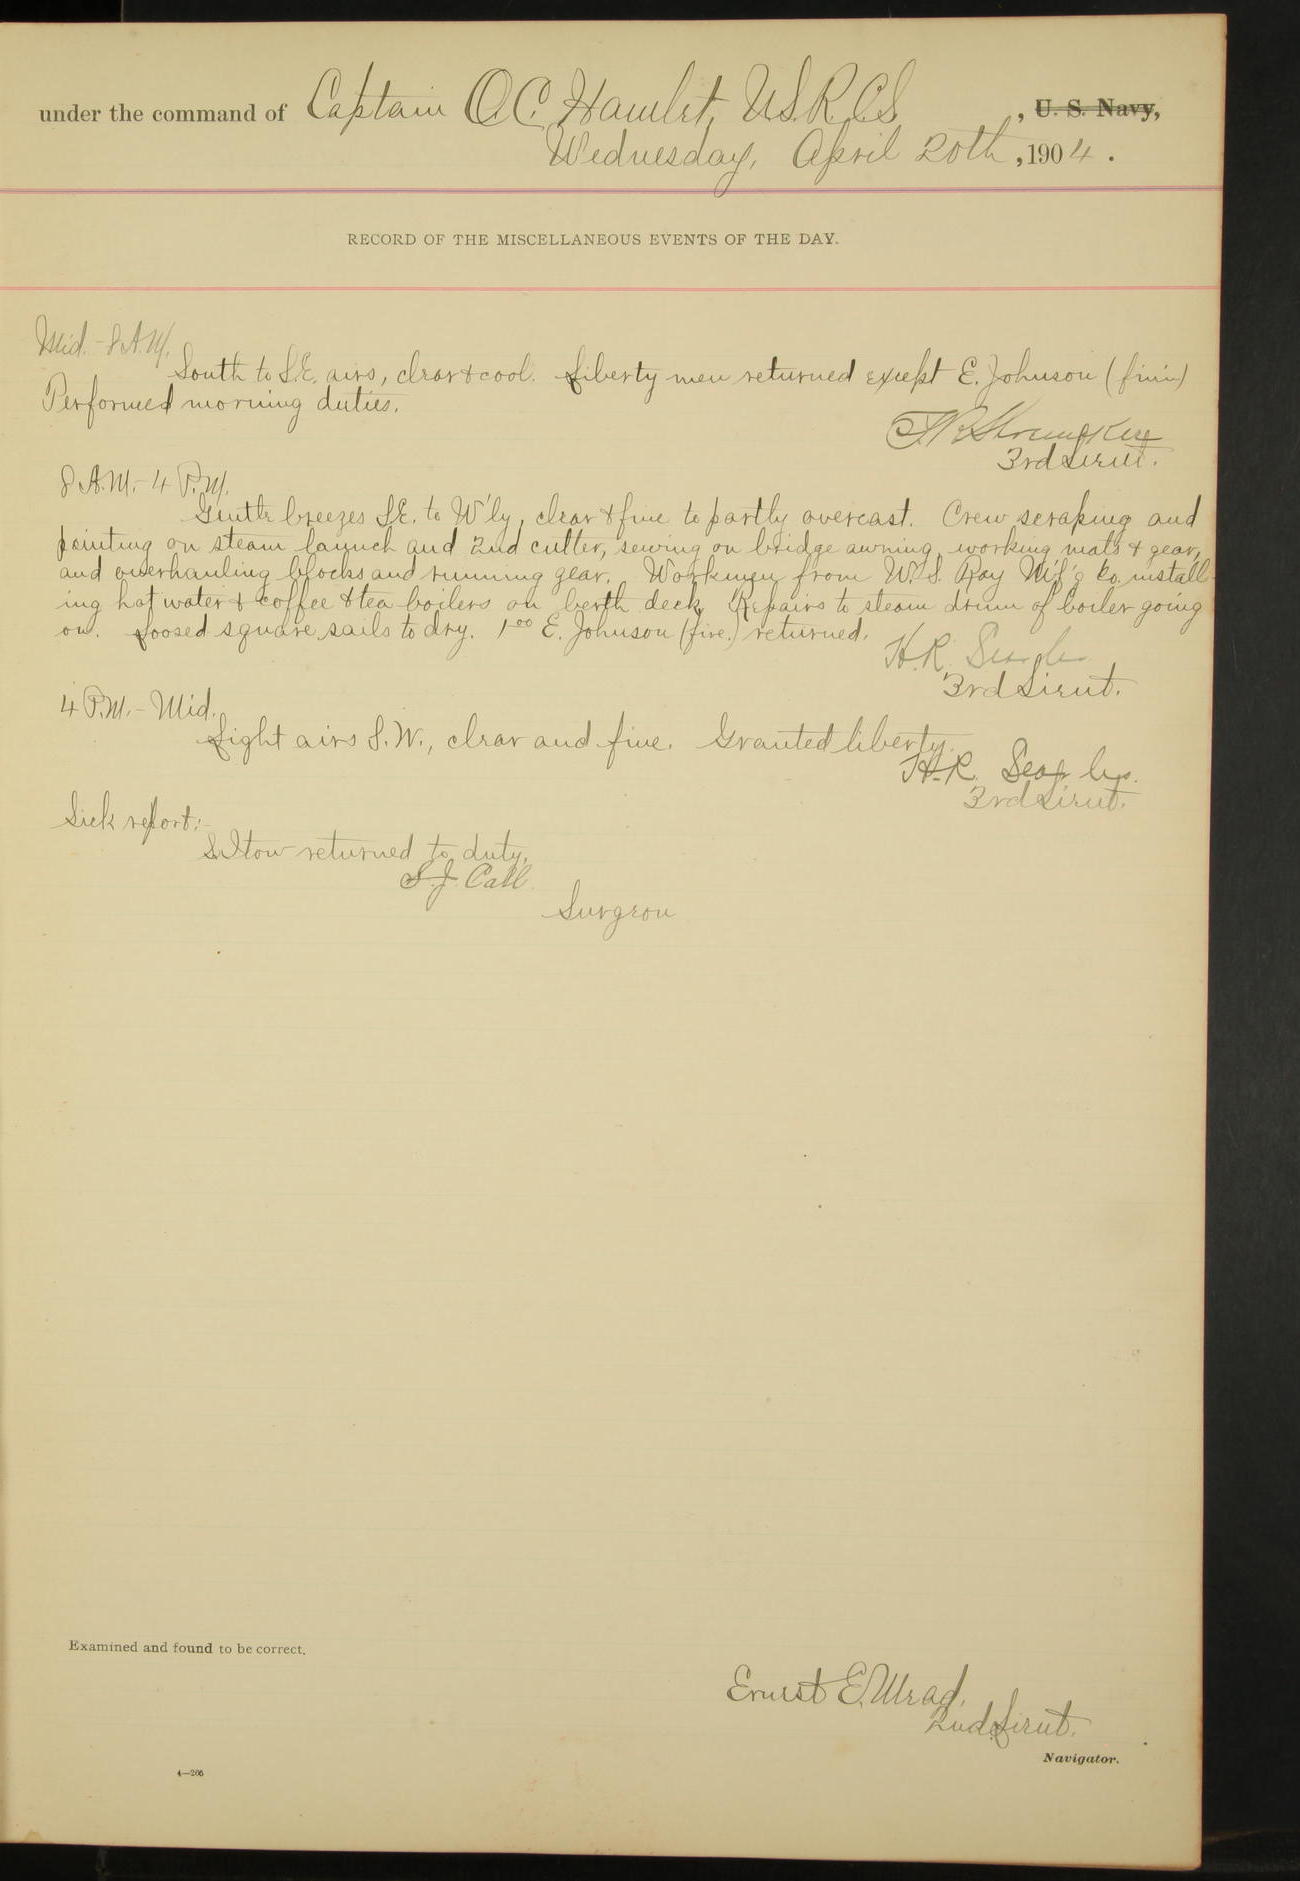 under the command of Captain O.C. Hamlet, U.S.R.C.S , U. S. Navy,
Wednesday, April 20th , 1904 .
RECORD OF THE MISCELLANEOUS EVENTS OF THE DAY.
Mid. - 8 A.M.
South to S.E. airs, clear & cool. Liberty men returned except E. Johnson
Performed morning duties.
3rd Lieut.
8 A.M. - 4 P.M.
Gentle breezes S.E. to W'ly, clear & fine to partly overcast. Crew scraping and
painting on steam launch and 2nd cutter, sewing on bridge awning, working mats & gear,
and overhauling blocks and running gear. Workmen from W.S. Ray M'f'g Co. install-
ing hot water & coffee & tea boilers on berth deck. Repairs to steam drum of boiler going
on. Loosed square sails to dry. 1 00 E. Johnson (fire.) returned.
H.R. Searles
3rd Lieut.
4 P.M. - Mid.
Light airs S.W., clear and fine. Granted liberty.
H.R. Searles.
3rd Lieut.
Sick report:-
S. Itow returned to duty.
S.J. Call
Surgeon
Examined and found to be correct.
Ernest E. Mead,
2nd Lieut.
Navigator.
4—266